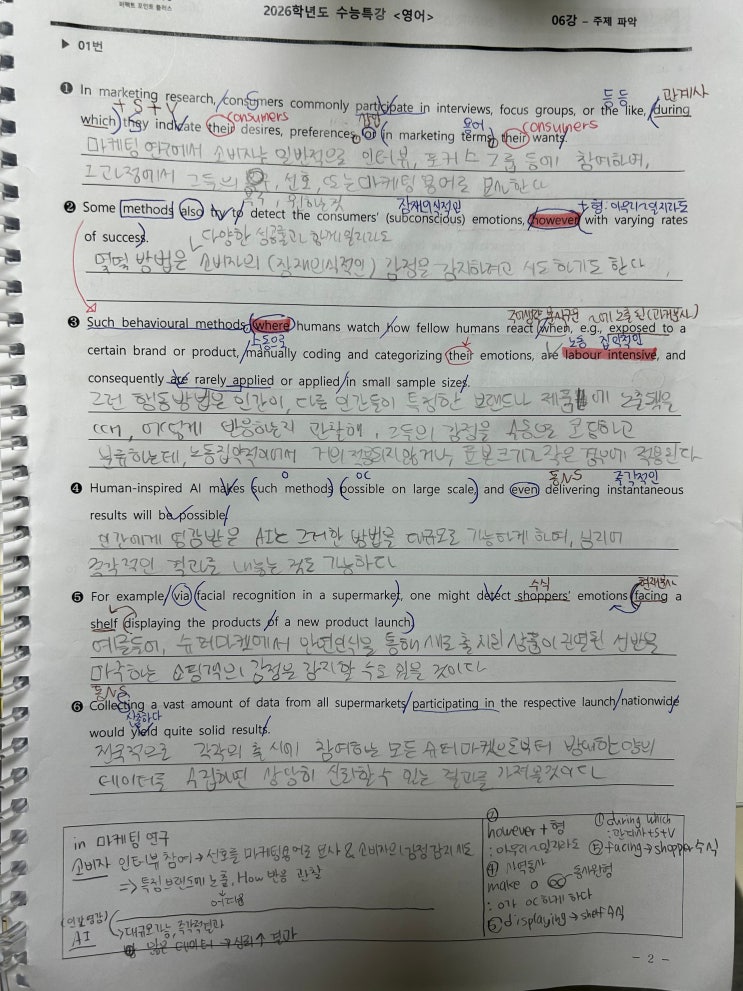 퍼펙트 포인트 플러스
2026학년도 수능특강 <영어>
06강 - 주제 파악
▶ 01번
등등 관계사
❶ In marketing research, consumers commonly participate in interviews, focus groups, or the like, during
+ S + V consumers 용어 consumers
which they indicate their desires, preferences, or (in marketing terms) their wants.
마케팅 연구에서 소비자는 일반적으로 인터뷰, 포커스 그룹 등에 참여하며,
그 과정에서 그들의 선호, 또는 마케팅 용어로
잠재의식적인 + 형: 아무리~일지라도
❷ Some methods also try to detect the consumers' (subconscious) emotions, however with varying rates
of success.
다양한 성공률과 함께일지라도
몇몇 방법은 소비자의 (잠재의식적인) 감정을 감지하려고 시도하기도 한다
~에 노출된 (과거분사)
❸ Such behavioural methods, where humans watch how fellow humans react when, e.g., exposed to a
수동으로 노동 집약적인
certain brand or product, manually coding and categorizing their emotions, are labour intensive, and
consequently are rarely applied or applied in small sample sizes.
그런 행동방법은 인간이, 다른 인간들이 특정한 브랜드나 제품에 노출됐을
때, 어떻게 반응하는지 관찰해, 그들의 감정을 수동으로 코딩하고
분류하는데, 노동집약적이어서 거의 적용되지 않거나, 표본크기가 작은 경우에 적용된다
O OC 동NS 즉각적인
❹ Human-inspired AI makes such methods possible on large scale, and even delivering instantaneous
results will be possible.
인간에게 영감받은 AI는 그러한 방법을 대규모로 가능하게 하며, 심지어
즉각적인 결과를 내놓는 것도 가능하다
수식 현재분사
❺ For example, via facial recognition in a supermarket, one might detect shoppers' emotions facing a
shelf displaying the products of a new product launch.
예를들어, 슈퍼마켓에서 안면인식을 통해 새로 출시된 상품이 진열된 선반을
마주하는 쇼핑객의 감정을 감지할 수도 있을 것이다
동NS
❻ Collecting a vast amount of data from all supermarkets participating in the respective launch nationwide
산출하다
would yield quite solid results.
전국적으로 각각의 출시에 참여하는 모든 슈퍼마켓으로부터 방대한 양의
데이터를 수집하면 상당히 신뢰할 수 있는 결과를 가져올것이다
in 마케팅 연구
소비자 인터뷰 참여 → 선호를 마케팅용어로 묘사 & 소비자의 감정 감지 시도
⇒ 특정 브랜드에 노출, How 반응 관찰
어떻게
(인간영감)
AI
↳ 대규모 가능, 즉각적결과
많은 데이터 → 신뢰↑ 결과
②
however + 형
: 아무리~일지라도
④ 사역동사
make O 동사원형
: O가 OC하게 하다
⑤ displaying → shelf 수식
① during which
: 관계사+S+V
⑤ facing → shopper 수식
- 2 -